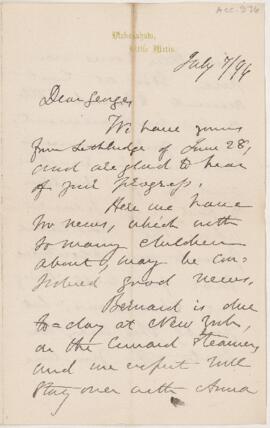 Acc. 976
Little Metis.
July 7/96
Dear George,
We have yours
from Lethbridge of June 28,
and are glad to hear
of your progress.
Here we have
no news, which with
so many children
about, may be con-
sidered good news.
Bernard is due
to-day at New York,
on the Cunard Steamer,
and we expect will
stay over with Anna